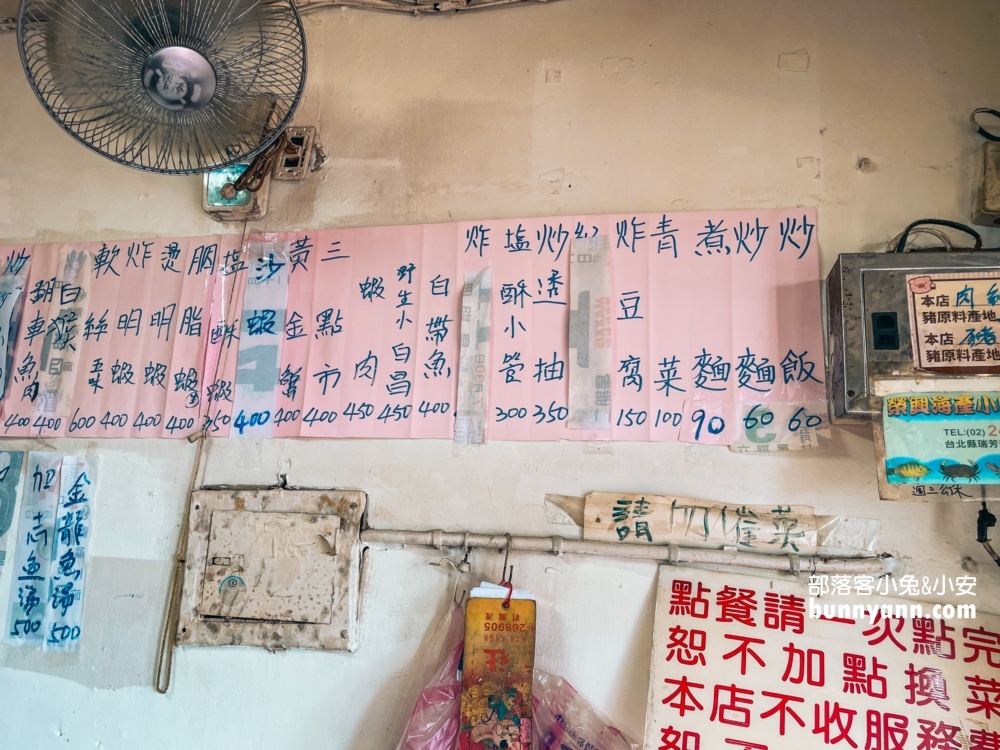 炒飯 60
炒麵 60
煮麵 90
青菜 100
炸豆腐 150
炒透抽 350
塩酥小管 300
炸
白帶魚 400
野生小白昌 450
蝦肉 450
三點市 400
黃金蟹 400
沙蝦 400
塩酥蝦 350
胭脂蝦 400
燙明蝦 400
炸明蝦 400
軟絲 600
400
400
炒
金龍魚湯 500
加志魚湯 500
請勿催菜
本店
豬原料產地
本店 豬
豬原料產地
榮興海產小
TEL:(02) 2
台北縣瑞芳
週三公休
部落客小兔&小安
bunnyann.com
點餐請一次點完
恕不加點換菜
本店不收服務費
恕不
268905